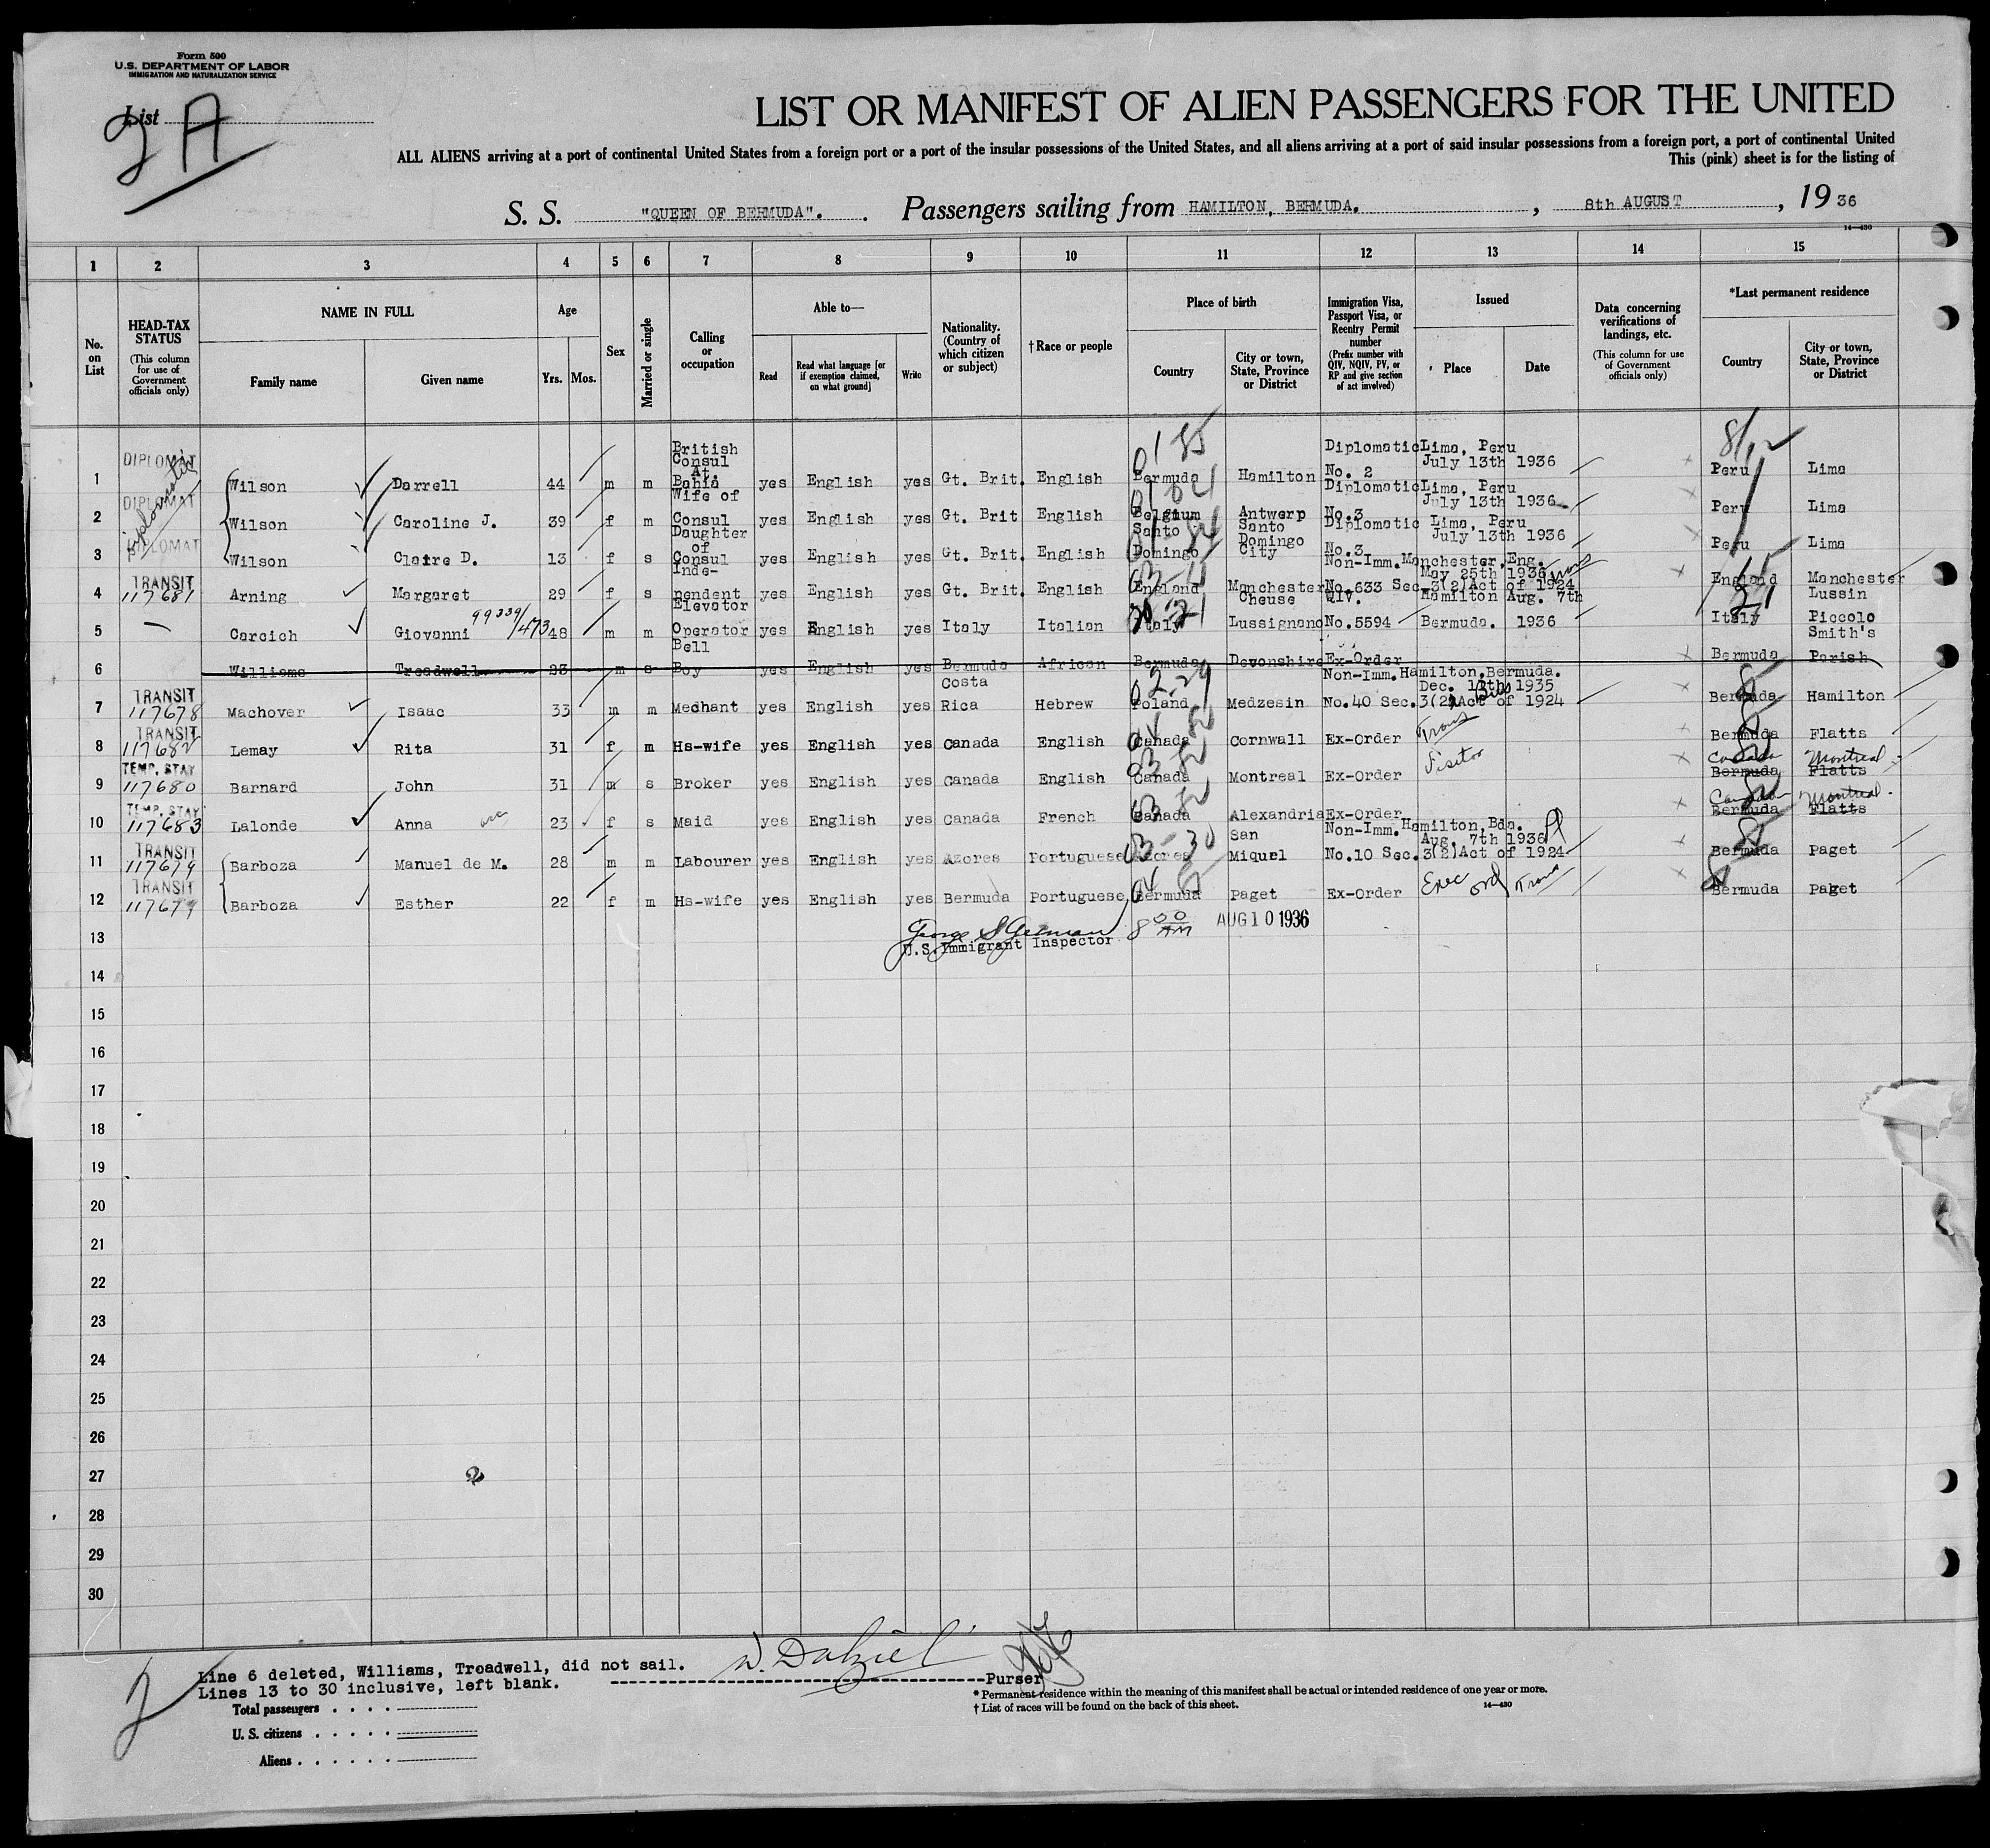 Form 500
U.S. DEPARTMENT OF LABOR
IMMIGRATION AND NATURALIZATION SERVICE
List
2 A
LIST OR MANIFEST OF ALIEN PASSENGERS FOR THE UNITED
ALL ALIENS arriving at a port of continental United States from a foreign port or a port of the insular possessions of the United States, and all aliens arriving at a port of said insular possessions from a foreign port, a port of continental United
This (pink) sheet is for the listing of
S. S. "QUEEN OF BERMUDA". Passengers sailing from HAMILTON, BERMUDA. , 8th AUGUST , 19 36
14—430
1 2 3 4 5 6 7 8 9 10 11 12 13 14 15
No. on List
HEAD-TAX STATUS (This column for use of Government officials only)
NAME IN FULL Family name Given name
Age Yrs. Mos.
Sex
Married or single
Calling or occupation
Able to— Read Read what language [or if exemption claimed, on what ground] Write
Nationality. (Country of which citizen or subject)
† Race or people
Place of birth Country City or town, State, Province or District
Immigration Visa, Passport Visa, or Reentry Permit number (Prefix number with QIV, NQIV, PV, or RP and give section of act involved)
Issued Place Date
Data concerning verifications of landings, etc. (This column for use of Government officials only)
*Last permanent residence Country City or town, State, Province or District
1 DIPLOMAT Wilson Darrell 44 m m British Consul At. Bahia yes English yes Gt. Brit. English Bermuda Hamilton Diplomatic No. 2 Lima, Peru July 13th 1936 Peru Lima
2 DIPLOMAT Wilson Caroline J. 39 f m Wife of Consul yes English yes Gt. Brit English Belgium Antwerp Diplomatic No.3 Lima, Peru July 13th 1936 Peru Lima
3 DIPLOMAT Wilson Claire D. 13 f s Daughter of Consul yes English yes Gt. Brit. English Santo Domingo Santo Domingo City Diplomatic No.3 Lima, Peru July 13th 1936 Peru Lima
4 TRANSIT 117681 Arning Margaret 29 f s Inde-pendent yes English yes Gt. Brit. English England Manchester Non-Imm. No.633 Sec. 3(2)Act of 1924 Manchester, Eng. May 25th 1936 England Manchester
5 — Carcich Giovanni 99339/473 48 m m Elevator Operator yes English yes Italy Italian Italy Cheuse Lussignano QIV. No.5594 Hamilton Bermuda. Aug. 7th 1936 Italy Lussin Piccolo
6 Williams Treadwell 23 m s Bell Boy yes English yes Bermuda African Bermuda Devonshire Ex-Order Bermuda Smith's Parish
7 TRANSIT 117678 Machover Isaac 33 m m Medhant yes English yes Costa Rica Hebrew Poland Medzesin Non-Imm. No.40 Sec.3(2)Act of 1924 Hamilton, Bermuda. Dec. 1935 Bermuda Hamilton
8 TRANSIT 117682 Lemay Rita 31 f m Hs-wife yes English yes Canada English Canada Cornwall Ex-Order Trans Bermuda Flatts
9 TEMP. STAY 117680 Barnard John 31 m s Broker yes English yes Canada English Canada Montreal Ex-Order Visitor Canada Montreal Bermuda Flatts
10 TEMP. STAY 117683 Lalonde Anna 23 f s Maid yes English yes Canada French Canada Alexandria Ex-Order Canada Montreal Bermuda Flatts
11 TRANSIT 117679 Barboza Manuel de M. 28 m m Labourer yes English yes Azores Portuguese Azores San Miquel Non-Imm. No.10 Sec.3(2)Act of 1924 Hamilton, Bda. Aug. 7th 1936 Bermuda Paget
12 TRANSIT 117679 Barboza Esther 22 f m Hs-wife yes English yes Bermuda Portuguese Bermuda Paget Ex-Order Exec ord Trans Bermuda Paget
13 8 00 AM AUG 10 1936
U.S. Immigrant Inspector
14
15
16
17
18
19
20
21
22
23
24
25
26
27
28
29
30
Line 6 deleted, Williams, Treadwell, did not sail.
Lines 13 to 30 inclusive, left blank.
Purser
2
Total passengers . . . .
U. S. citizens . . . . .
Aliens . . . . . .
* Permanent residence within the meaning of this manifest shall be actual or intended residence of one year or more.
† List of races will be found on the back of this sheet.
14—430